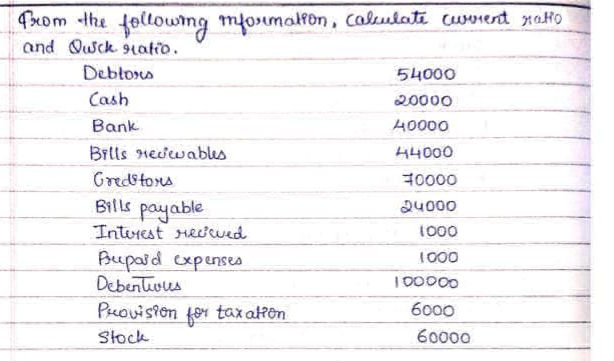 From the following information, calculate current ratio
and Quick ratio.
Debtors 54000
Cash 20000
Bank 40000
Bills recievables 44000
Creditors 70000
Bills payable 24000
Interest recieved 1000
Prepaid expenses 1000
Debentures 100000
Provision for taxation 6000
Stock 60000